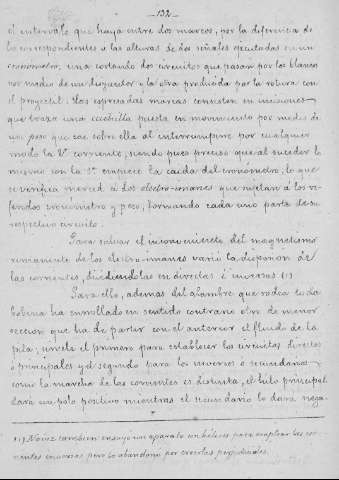 —132—
el intervalo que haya entre dos marcas, por la diferencia de
las correspondientes a las alturas de dos señales ejecutadas en un
cronómetro, una cortando dos circuitos que pasan por los blancos
por medio de un disyuntor y la otra producida por la rotura con
el proyectil. Las espresadas marcas consisten en incisiones
que traza una cuchilla puesta en movimiento por medio de
un peso que cae sobre ella al interrumpirse por cualquier
modo la 2ª corriente, siendo pues preciso que al suceder lo
mismo con la 1ª empiece la caida del cronómetro, lo que
se verifica merced a dos electro-imanes que sujetan á los re-
feridos cronómetro y peso, formando cada uno parte de su
respectivo circuito.
Para salvar el inconveniente del magnetismo
remanente de los electro-imanes varió la disposicion de
las corrientes, dividiendolas en directas é inversas (1)
Para ello, ademas del alambre que rodea toda
bobina ha enrollado en sentido contrario otro de menor
seccion que ha de partir con el anterior el fluido de la
pila; sirvele el primero para establecer los circuitos directos
ó principales y el segundo para los inversos ó secundarios
como la marcha de las corrientes es distinta, el hilo principal
dará un polo positivo mientras el secundario lo dará nega-
(1) Navez tambien ensayó un aparato en hélices para emplear las cor-
rientes inversas pero lo abandonó por creerlas perjudiciales.